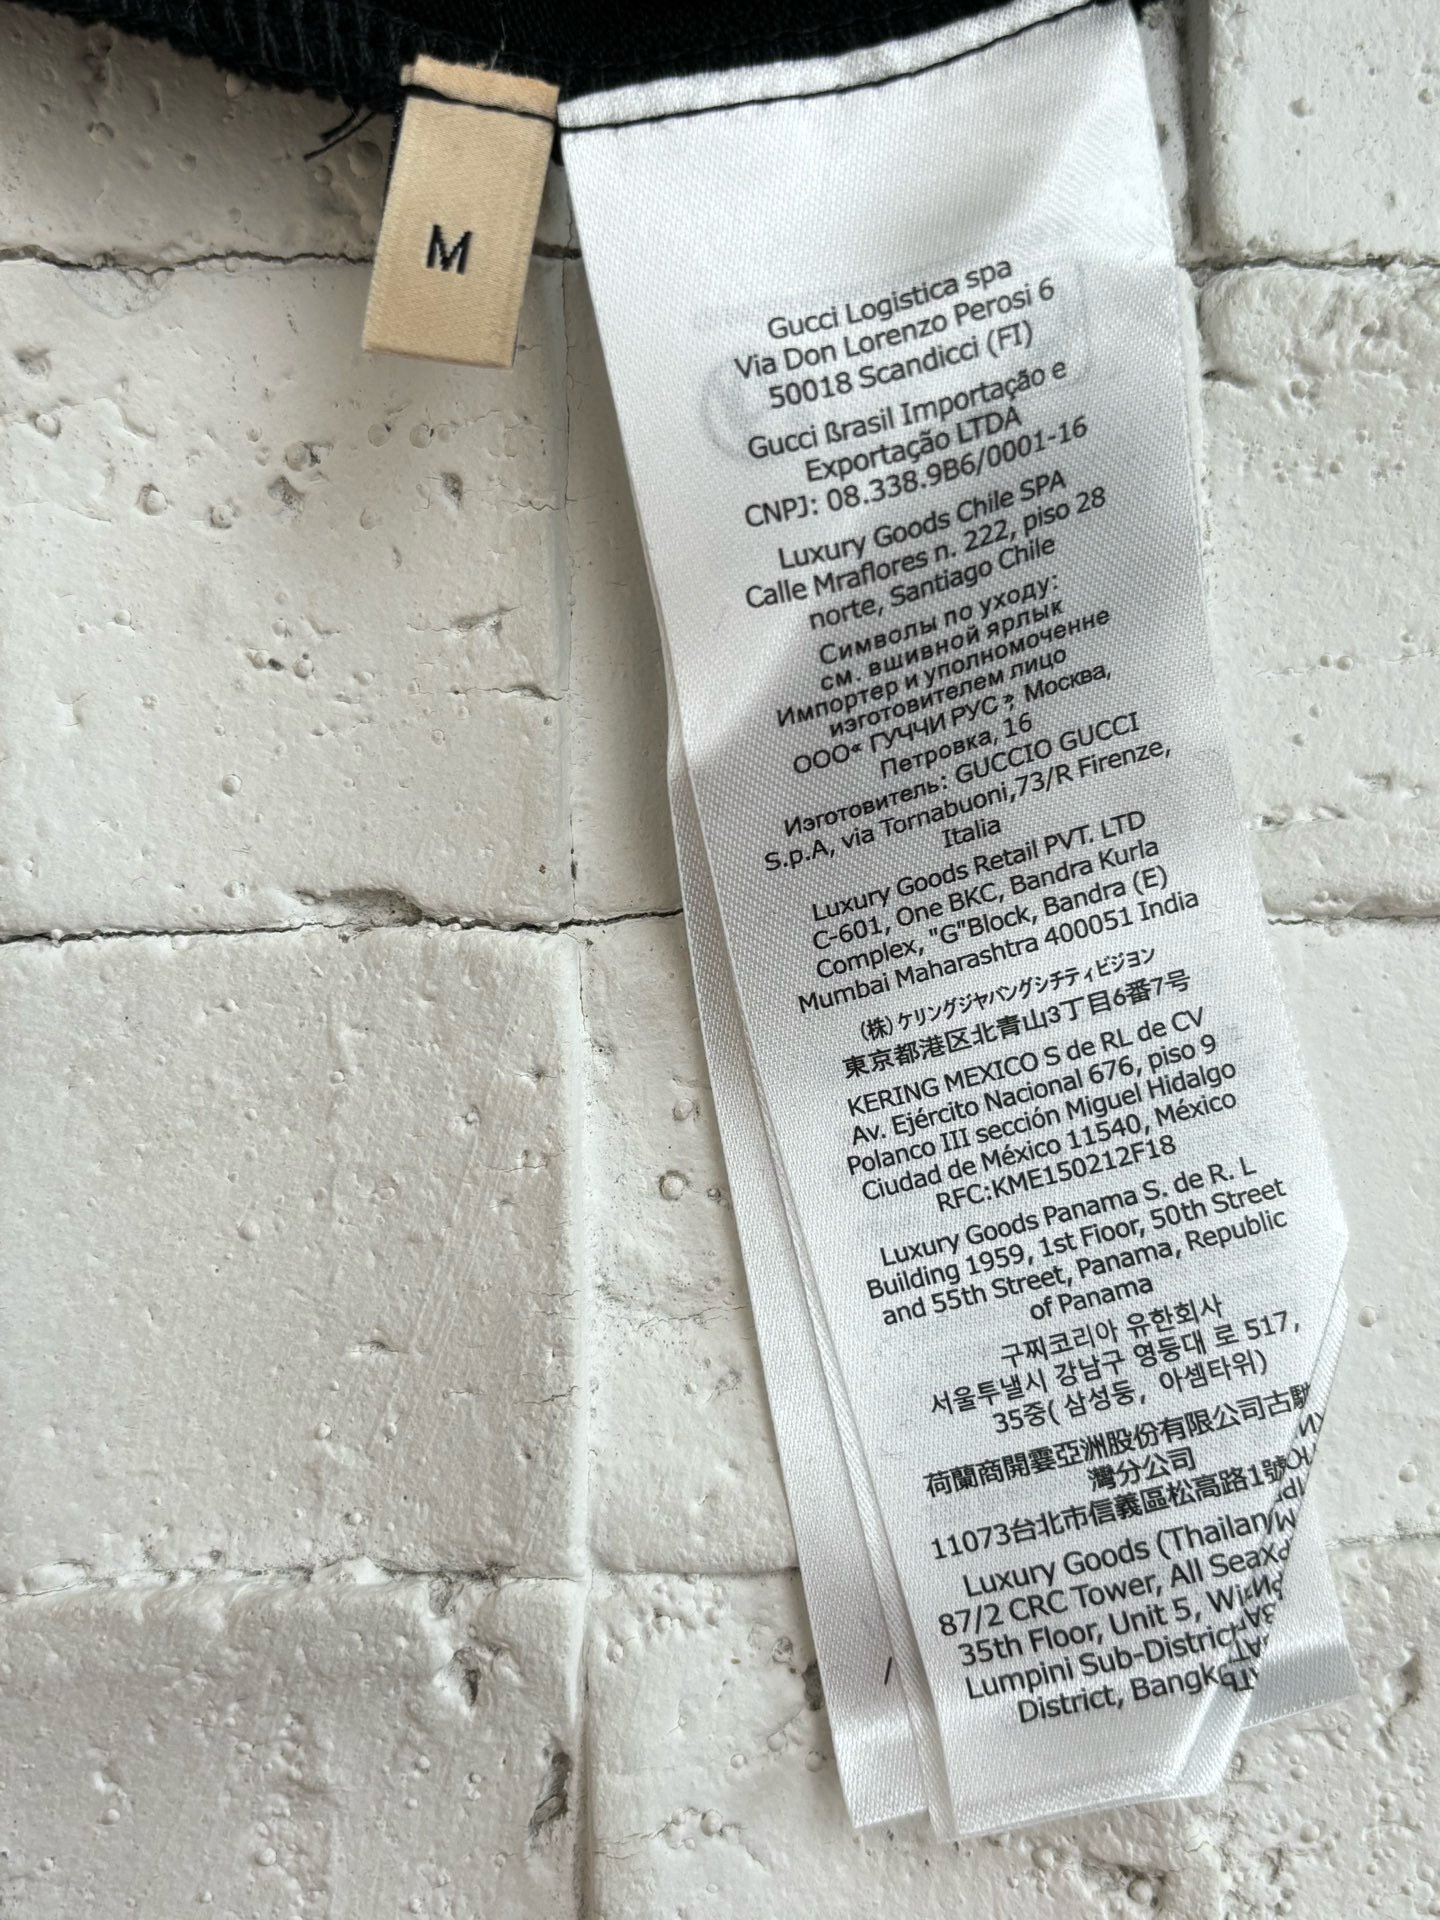 M
Gucci Logistica spa
Via Don Lorenzo Perosi 6
50018 Scandicci (FI)
Gucci ßrasil Importação e
Exportação LTDA
CNPJ: 08.338.9B6/0001-16
Luxury Goods Chile SPA
Calle Mraflores n. 222, piso 28
norte, Santiago Chile
Символы по уходу:
см. вшивной ярлык
Импортер и уполномоченне
изготовителем лицо
ООО« ГУЧЧИ РУС », Москва,
Петровка, 16
Изготовитель: GUCCIO GUCCI
S.p.A, via Tornabuoni,73/R Firenze,
Italia
Luxury Goods Retail PVT. LTD
C-601, One BKC, Bandra Kurla
Complex, "G"Block, Bandra (E)
Mumbai Maharashtra 400051 India
(株)ケリングジヤバングシチティビジョン
東京都港区北青山3丁目6番7号
KERING MEXICO S de RL de CV
Av. Ejército Nacional 676, piso 9
Polanco III sección Miguel Hidalgo
Ciudad de México 11540, México
RFC:KME150212F18
Luxury Goods Panama S. de R. L
Building 1959, 1st Floor, 50th Street
and 55th Street, Panama, Republic
of Panama
구찌코리아 유한회사
서울투낼시 강남구 영등대 로 517,
35중( 삼성둥, 아셈타위)
荷蘭商開雲亞洲股份有限公司古馳
灣分公司
11073台北市信義區松高路1號
Luxury Goods (Thailan
87/2 CRC Tower, All Sea
35th Floor, Unit 5, Wi
Lumpini Sub-District
District, Bangk